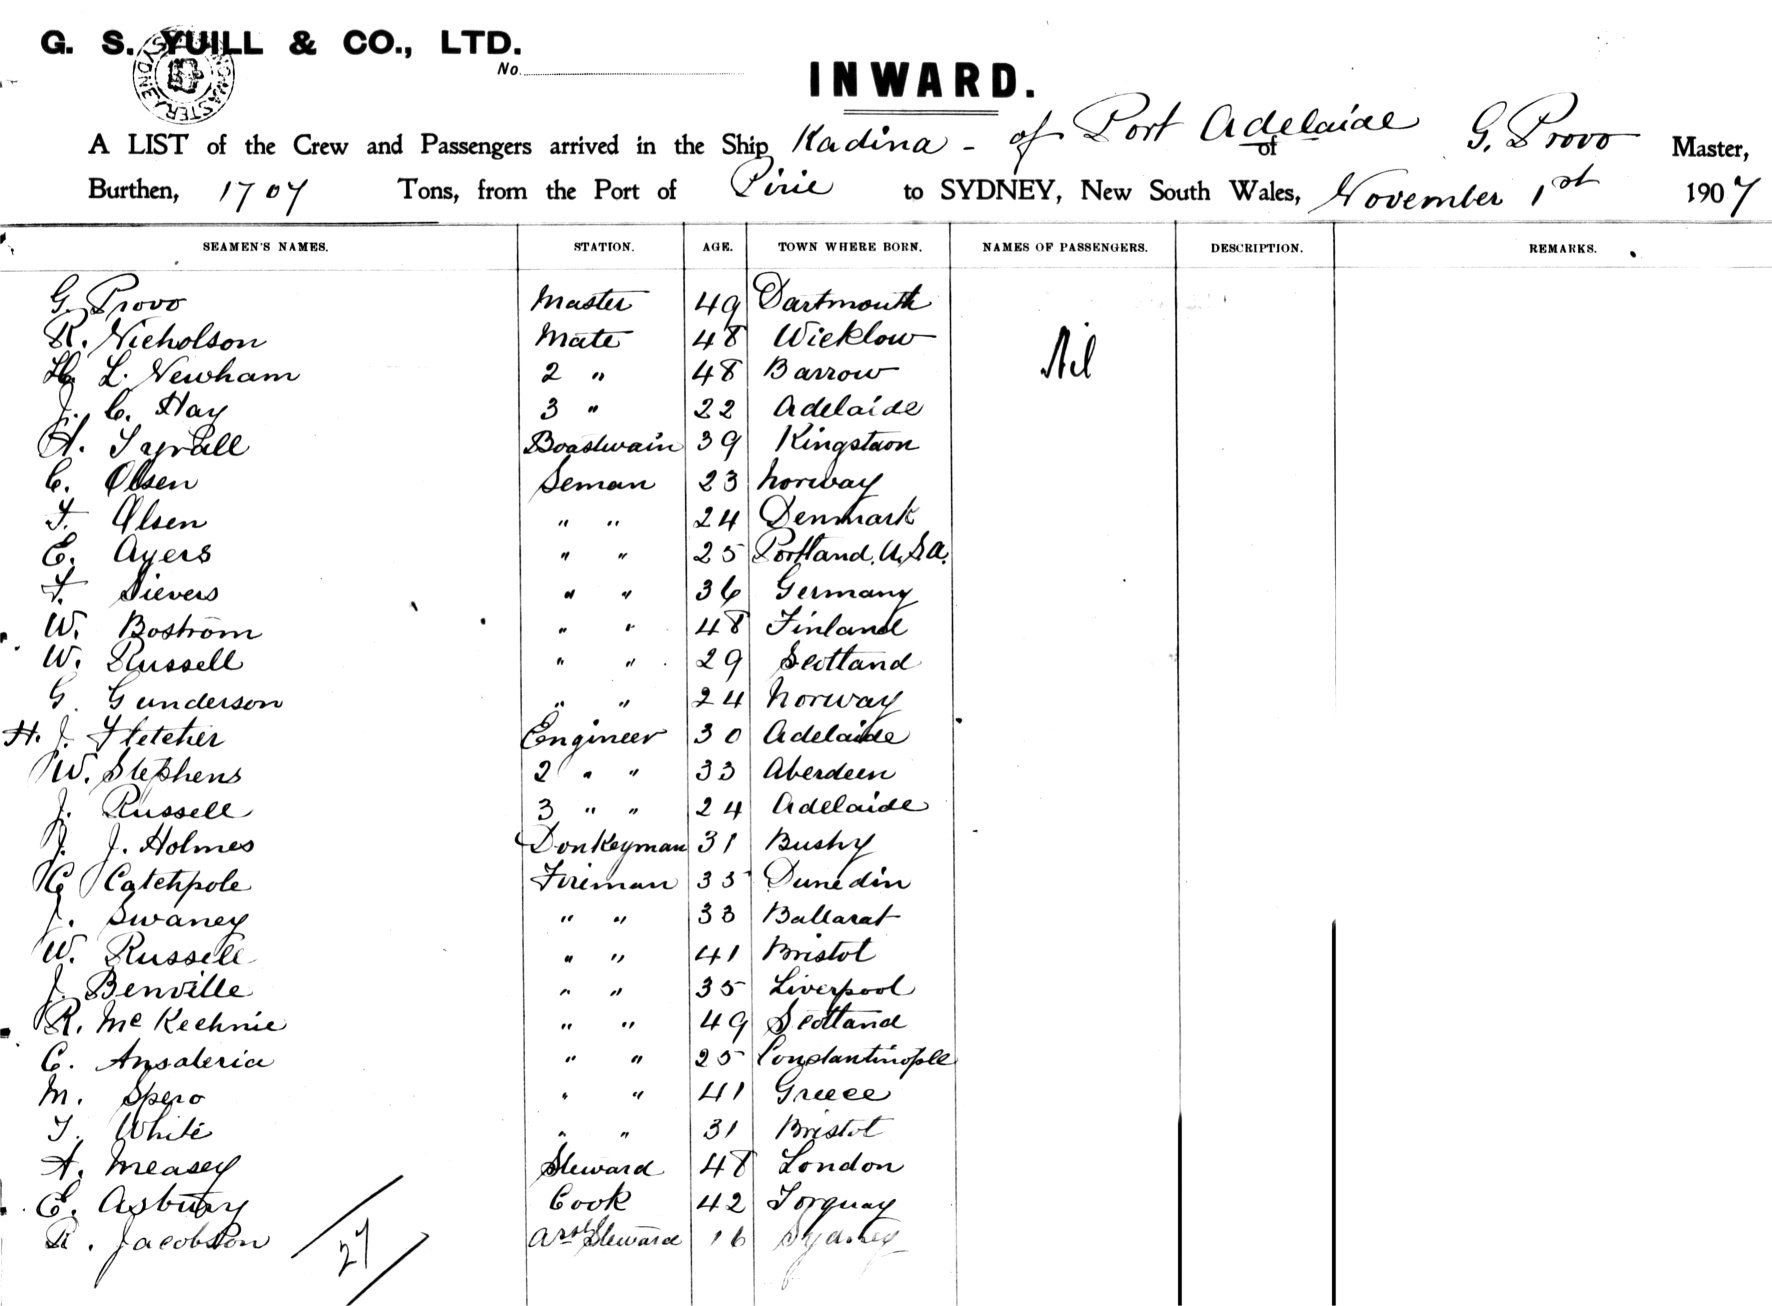 G. S. YUILL & CO., LTD.
No.
INWARD.
A LIST of the Crew and Passengers arrived in the Ship Kadina - of Port Adelaide of G. Provo Master,
Burthen, 1707 Tons, from the Port of Pirie to SYDNEY, New South Wales, November 1st 1907
SEAMEN'S NAMES. STATION. AGE. TOWN WHERE BORN. NAMES OF PASSENGERS. DESCRIPTION. REMARKS.
G. Provo Master 49 Dartmouth
R. Nicholson Mate 48 Wicklow Nil
H. L. Newham 2 " 48 Barrow
J. C. Hay 3 " 22 Adelaide
H. Tyrall Boastwain 39 Kingstaon
C. Olsen Seman 23 Norway
F. Olsen " " 24 Denmark
E. Ayers " " 25 Portland, U.S.A.
F. Sievers " " 36 Germany
W. Bostrom " " 48 Finland
W. Russell " " 29 Scotland
G. Gunderson " " 24 Norway
H. J. Fletcher Engineer 30 Adelaide
W. Stephens 2 " " 33 Aberdeen
J. Russell 3 " " 24 Adelaide
J. J. Holmes Donkeyman 31 Bushy
C. Catchpole Fireman 35 Dunedin
J. Swaney " " 33 Ballarat
W. Russell " " 41 Bristol
J. Benville " " 35 Liverpool
R. McKechnie " " 49 Scotland
C. Ansaleria " " 25 Constantinople
M. Spero " " 41 Greece
T. White " " 31 Bristol
A. Measey Steward 48 London
E. Asbury Cook 42 Torquay
R. Jacobson Asst Steward 16 Sydney
27